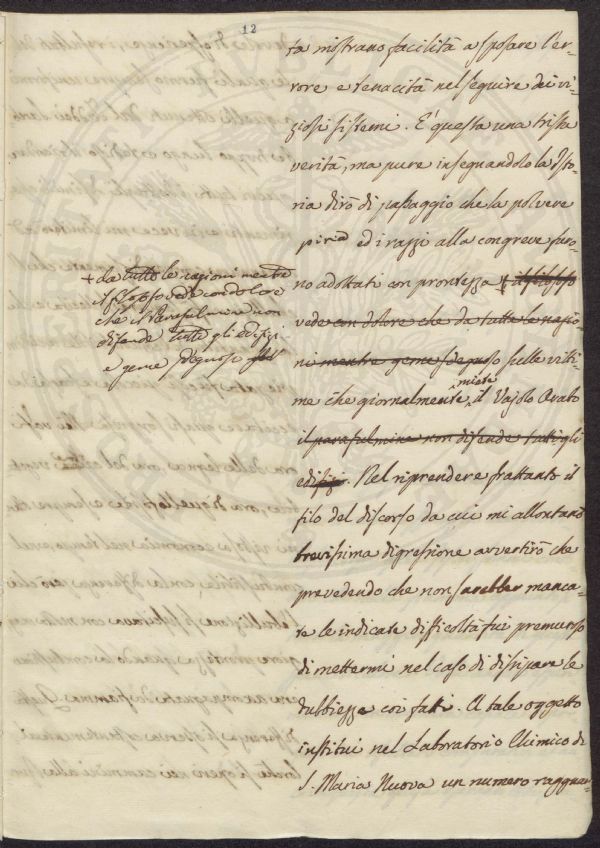 12
ta mostrano facilità a sposare l'er-
rore e tenacità nel seguire dei vi-
ziosi sistemi. E' questa una trista
verità, ma pure insegnandolo la Isto-
ria dirò di passaggio che la polvere
piria ed i razzi alla congreve furo-
no adottati con prontezza + il filosofo
vede con dolore che da tutte le nazio-
ni mentre geme sdegnoso sulle vitti-
me che giornalmente miete il Vajolo Arabo
il parafulmine non difende tutti gli
edifizi. Nel riprendere frattanto il
filo del discorso da cui mi allontanò
brevissima digressione avvertirò che
prevedendo che non sarebber manca-
te le indicate difficoltà fui premuroso
di mettermi nel caso di dissipare le
dubbiezze coi fatti. A tale oggetto
instituì nel Laboratorio Chimico di
S. Maria Nuova un numero ragguar-
+ da tutte le nazioni mentre
il filosofo vede con dolore
che il Parafulmine non
difende tutti gli edifizi
e geme sdegnoso